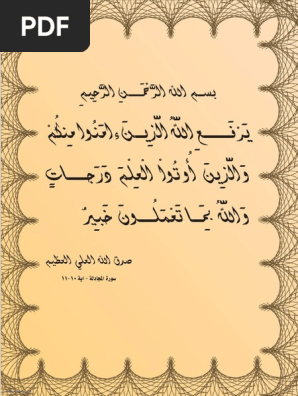 PDF
بسم الله الرَّحْمَنِ الرَّحِيمِ
يَرْفَعِ اللَّهُ الَّذِينَ ءَامَنُوا مِنكُمْ
وَالَّذِينَ أُوتُوا الْعِلْمَ دَرَجَاتٍ
وَاللَّهُ بِمَا تَعْمَلُونَ خَبِيرٌ
صدق الله العلي العظيم
سورة المجادلة - اية ١٠-١١